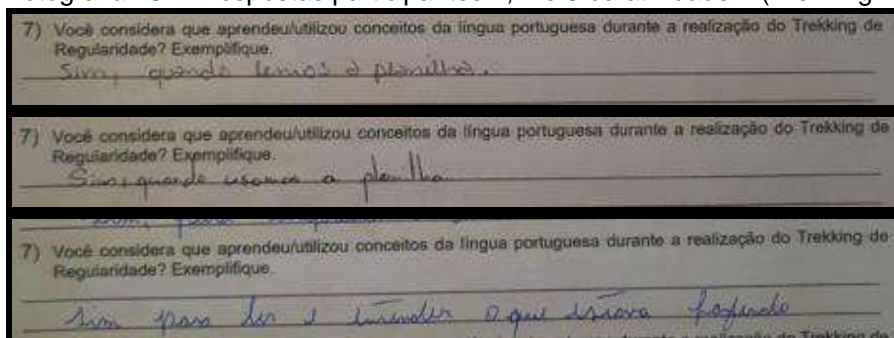 7) Você considera que aprendeu/utilizou conceitos da língua portuguesa durante a realização do Trekking de
Regularidade? Exemplifique.
Sim, quando lemos a planilha.
7) Você considera que aprendeu/utilizou conceitos da língua portuguesa durante a realização do Trekking de
Regularidade? Exemplifique.
Sim, quando usamos a planilha.
7) Você considera que aprendeu/utilizou conceitos da língua portuguesa durante a realização do Trekking de
Regularidade? Exemplifique.
Sim para ler e entender o que estava fazendo
realização do Trekking de